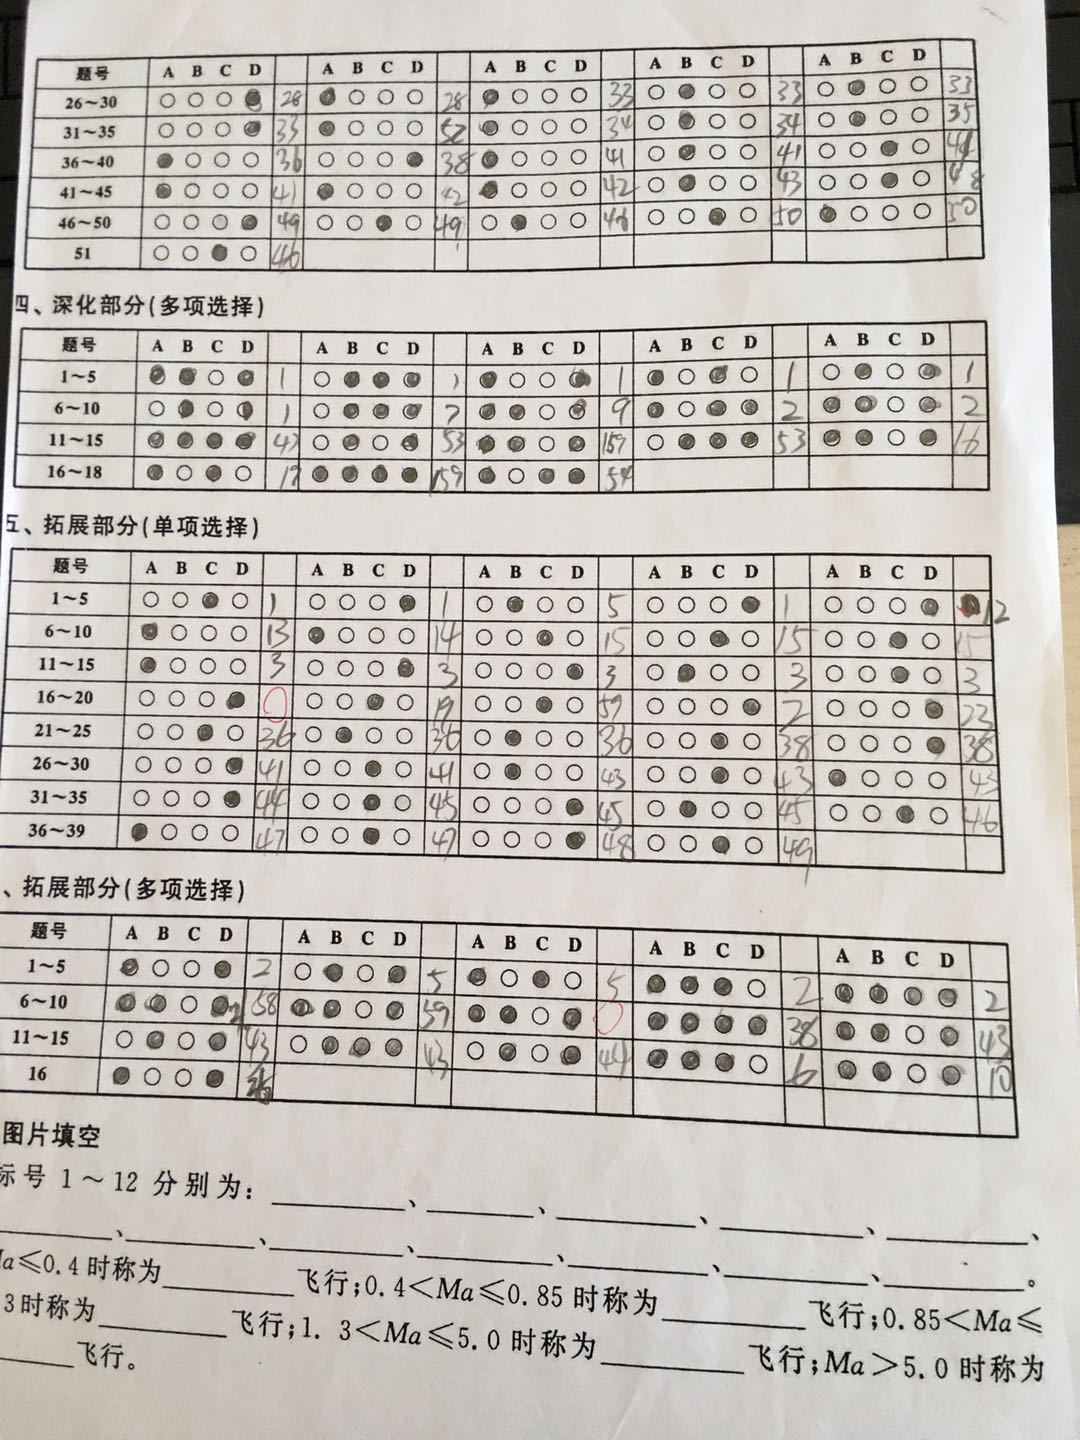 题号 A B C D A B C D A B C D A B C D A B C D
26～30 28 28 33 33 33
31～35 33 52 34 34 35
36～40 36 38 41 41 44
41～45 41 42 42 43 48
46～50 49 49 46 50 50
51 46
四、深化部分(多项选择)
题号 A B C D A B C D A B C D A B C D A B C D
1～5 1 1 1 1 1
6～10 1 7 9 2 2
11～15 43 53 159 53 16
16～18 17 159 54
五、拓展部分(单项选择)
题号 A B C D A B C D A B C D A B C D A B C D
1～5 1 1 5 1 12
6～10 13 14 15 15 15
11～15 3 3 3 3 3
16～20 19 59 2 23
21～25 36 36 36 38 38
26～30 41 41 43 43 43
31～35 44 45 45 45 46
36～39 47 47 48 49
、拓展部分(多项选择)
题号 A B C D A B C D A B C D A B C D A B C D
1～5 2 5 5 2 2
6～10 58 59 38 43
11～15 43 43 44 6 10
16
图片填空
标号 1～12 分别为: 、 、 、 、 、
、 、 、 、 、 、 。
Ma≤0.4 时称为 飞行;0.4<Ma≤0.85 时称为 飞行;0.85<Ma≤
3时称为 飞行;1.3<Ma≤5.0 时称为 飞行;Ma>5.0 时称为
飞行。